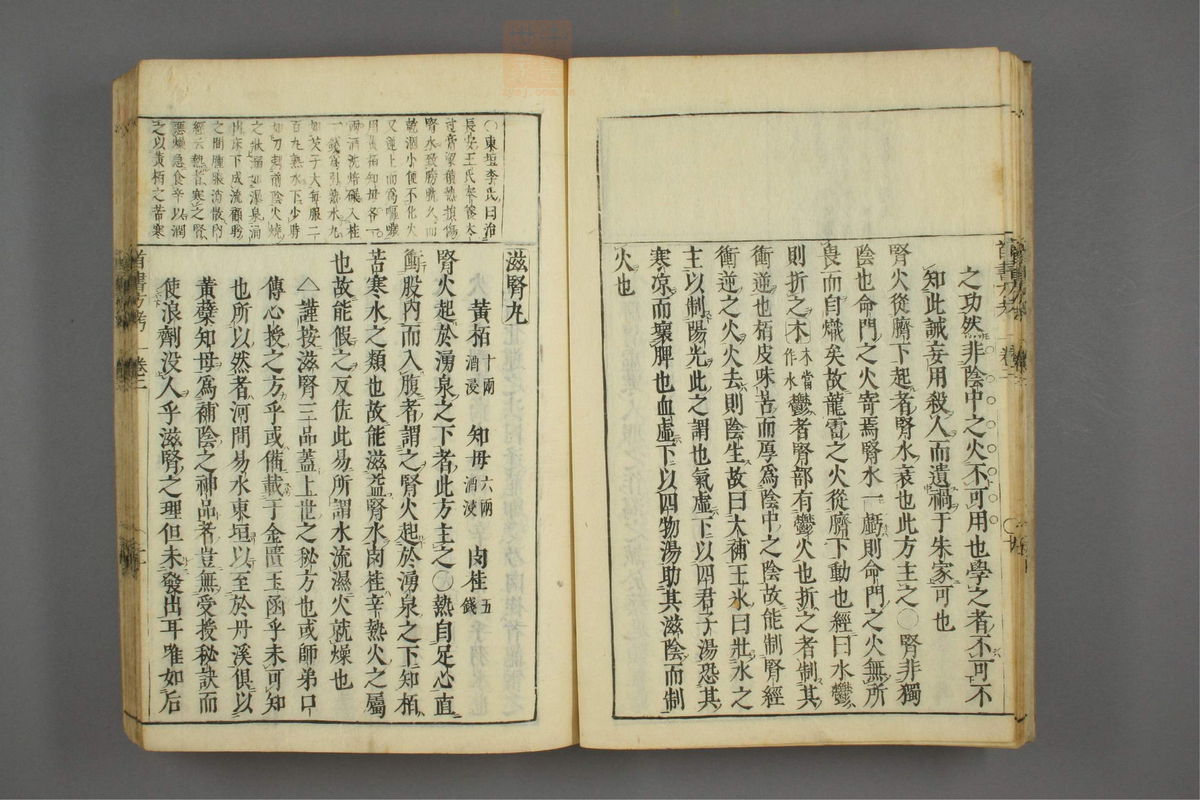 之功然非陰中之火不可用也學之者不可不
知此誡妄用殺人而遺禍于朱家可也
腎火從臍下起者腎水衰也此方主之〇腎非獨
陰也命門之火寄焉腎水一虧則命門之火無所
畏而自熾矣故龍雷之火從臍下動也經曰水鬱
則折之木木當作水鬱者腎部有鬱火也折之者制其
衝逆也栢皮味苦而厚爲陰中之陰故能制腎經
衝逆之火火去則陰生故曰大補王氷曰壯水之
主以制陽光此之謂也氣虛下以四君子湯恐其
寒凉而壞脾也血虛下以四物湯助其滋陰而制
火也
〇東垣李氏曰治
長安王氏
過膏梁積熱損傷
腎水致膀胱久而
乾涸小便不化火
又逆上而爲嘔噦
用黃栢知母各一
兩酒洗焙碾入桂
一錢爲引熟水丸
如芡子大每服二
百丸熟水下少時
如刀刺前陰火燒
之狀溺如瀑泉涌
出床下成流顧盼
之間腫脹消散內
經云熱者寒之腎
惡燥急食辛以潤
之以黃栢之苦寒
滋腎丸
黃栢十兩酒浸 知母六兩酒浸 肉桂五錢
腎火起於湧泉之下者此方主之〇熱自足心直
衝股內而入腹者謂之腎火起於湧泉之下知栢
苦寒水之類也故能滋益腎水肉桂辛熱火之屬
也故能假之反佐此易所謂水流濕火就燥也
△謹按滋腎三品蓋上世之秘方也或師弟口
傳心授之方乎或備載于金匱玉函乎未可知
也所以然者河間易水東垣以至於丹溪俱以
黃蘗知母爲補陰之神品者豈無受授秘訣而
使浪劑没人乎滋腎之理但未發出耳唯如后